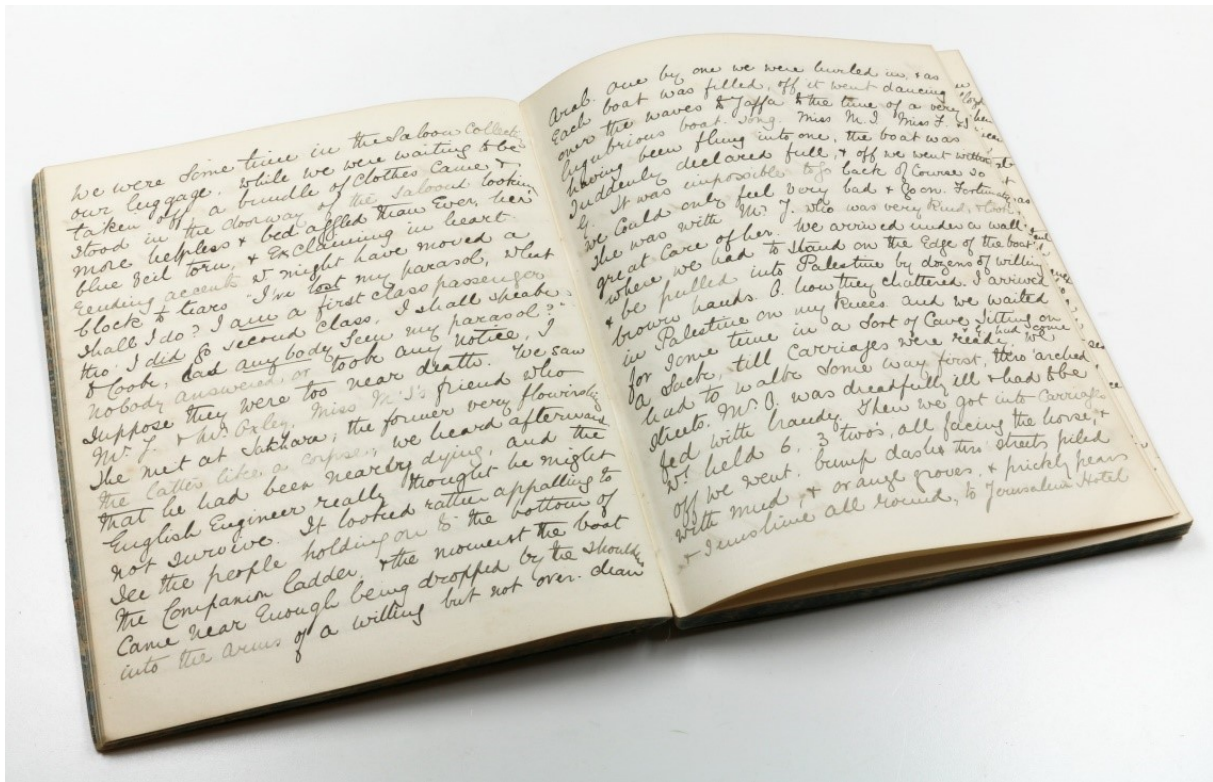 We were some time in the Saloon Collecti
our luggage. While we were waiting to be
taken off a bundle of Clothes Came &
stood in the doorway of the saloon looking
more helpless & bed affled than Ever, her
blue veil torn, & Exclaiming in heart
rending accents wh might have moved a
block to tears "I've lost my parasol, what
shall I do? I am a first class passenger
tho' I did go second class, I shall speak
to Cook, has any body seen my parasol?"
nobody answered, or took any notice, I
suppose they were too near death. We saw
Mr J. & Mr Oxley, Miss M.I's friend who
She met at Sakhara, the former very flourishing
the latter like a corpse, we heard afterwards
that he had been nearly dying, and the
English Engineer really thought he might
not survive. It looked rather appalling to
see the people holding on to the bottom of
the Companion ladder, & the moment the boat
Came near Enough being dropped by the Shoulde
into the arms of a willing but not over-clean
Arab. one by one we were hurled in, & as
Each boat was filled, off it went dancing
over the waves to Jaffa to the tune of a very
lugubrious boat song. Miss M.I. Miss F. & I
having been flung into one, the boat was
suddenly declared full, & off we went without
G. It was impossible to go back of Course so
we Could only feel very bad & go on. Fortunately
She was with Mr J. who was very kind, & took
great Care of her. We arrived under a wall
where we had to stand on the Edge of the boat
& be pulled into Palestine by dozens of willing
brown hands. O. how they chattered. I arrived
in Palestine on my knees. and we waited
for some time in a sort of Cave sitting on
a Sack, till Carriages were ready. We
had to walk some way first, thro' arched
streets. Mr O. was dreadfully ill & had to be
fed with brandy. Then we got into Carriages
wh held 6. 3 two's, all facing the horse, &
off we went, bump dash & thro Streets piled
with mud, & orange groves, & prickly pears
& sunshine all round, to Jerusalem Hotel